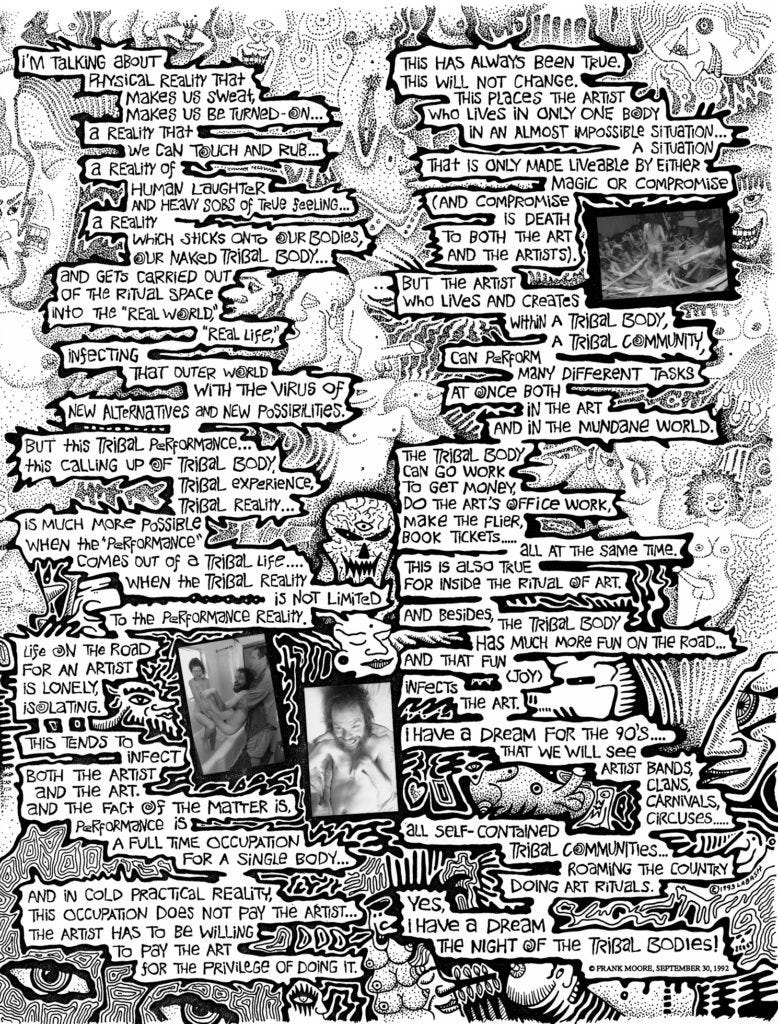 I'M TALKING ABOUT
PHYSICAL REALITY THAT
MAKES US SWEAT,
MAKES US BE TURNED-ON...
A REALITY THAT
WE CAN TOUCH AND RUB...
A REALITY OF
HUMAN LAUGHTER
AND HEAVY SOBS OF TRUE FEELING...
A REALITY
WHICH STICKS ONTO OUR BODIES,
OUR NAKED TRIBAL BODY...
AND GETS CARRIED OUT
OF THE RITUAL SPACE
INTO THE "REAL WORLD,"
"REAL LIFE,"
INFECTING
THAT OUTER WORLD
WITH THE VIRUS OF
NEW ALTERNATIVES AND NEW POSSIBILITIES.
BUT THIS TRIBAL PERFORMANCE...
THIS CALLING UP OF TRIBAL BODY,
TRIBAL EXPERIENCE,
TRIBAL REALITY...
IS MUCH MORE POSSIBLE
WHEN THE "PERFORMANCE"
COMES OUT OF A TRIBAL LIFE....
WHEN THE TRIBAL REALITY
IS NOT LIMITED
TO THE PERFORMANCE REALITY.
LIFE ON THE ROAD
FOR AN ARTIST
IS LONELY,
ISOLATING.
THIS TENDS TO
INFECT
BOTH THE ARTIST
AND THE ART.
AND THE FACT OF THE MATTER IS,
PERFORMANCE IS
A FULL TIME OCCUPATION
FOR A SINGLE BODY...
AND IN COLD PRACTICAL REALITY,
THIS OCCUPATION DOES NOT PAY THE ARTIST...
THE ARTIST HAS TO BE WILLING
TO PAY THE ART
FOR THE PRIVILEGE OF DOING IT.
THIS HAS ALWAYS BEEN TRUE.
THIS WILL NOT CHANGE.
THIS PLACES THE ARTIST
WHO LIVES IN ONLY ONE BODY
IN AN ALMOST IMPOSSIBLE SITUATION...
A SITUATION
THAT IS ONLY MADE LIVEABLE BY EITHER
MAGIC OR COMPROMISE
(AND COMPROMISE
IS DEATH
TO BOTH THE ART
AND THE ARTISTS).
BUT THE ARTIST
WHO LIVES AND CREATES
WITHIN A TRIBAL BODY,
A TRIBAL COMMUNITY,
CAN PERFORM
MANY DIFFERENT TASKS
AT ONCE BOTH
IN THE ART
AND IN THE MUNDANE WORLD.
THE TRIBAL BODY
CAN GO WORK
TO GET MONEY,
DO THE ART'S OFFICE WORK,
MAKE THE FLIER,
BOOK TICKETS.....
ALL AT THE SAME TIME.
THIS IS ALSO TRUE
FOR INSIDE THE RITUAL OF ART.
AND BESIDES,
THE TRIBAL BODY
HAS MUCH MORE FUN ON THE ROAD...
AND THAT FUN
(JOY)
INFECTS
THE ART.
I HAVE A DREAM FOR THE 90'S....
THAT WE WILL SEE
ARTIST BANDS,
CLANS,
CARNIVALS,
CIRCUSES.....
ALL SELF-CONTAINED
TRIBAL COMMUNITIES...
ROAMING THE COUNTRY
DOING ART RITUALS.
©1993 LABASH
YES,
I HAVE A DREAM
THE NIGHT OF THE TRIBAL BODIES!
© FRANK MOORE, SEPTEMBER 30, 1992